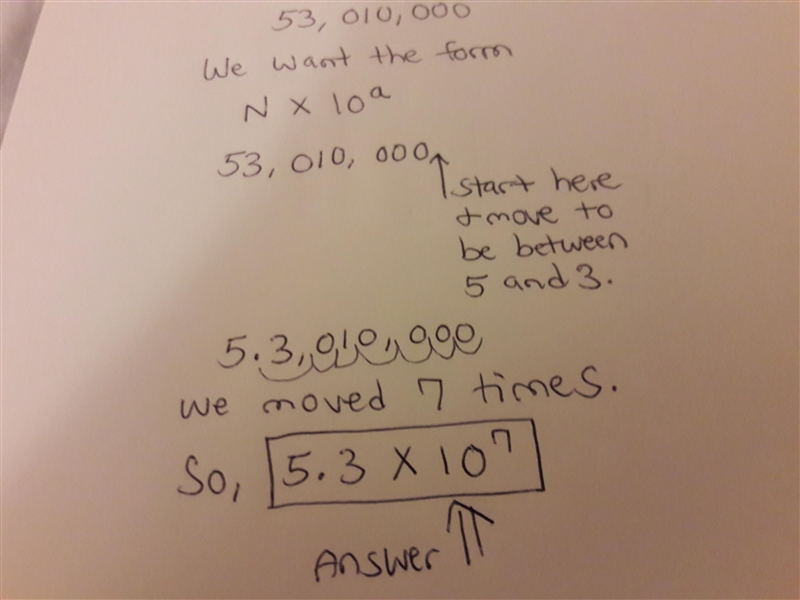 53, 010, 000
We want the form
N X 10ᵃ
53, 010, 000
start here
& move to
be between
5 and 3.
5.3,010,000
We moved 7 times.
So, 5.3 X 10⁷
Answer